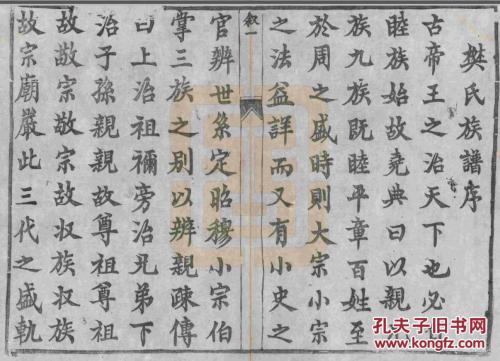 樊氏族譜序
古帝王之治天下也必
睦族始故堯典曰以親
族九族既睦平章百姓至
於周之盛時則大宗小宗
之法益詳而又有小史之
叙一
官辨世系定昭穆小宗伯
掌三族之别以辨親疎傳
曰上治祖禰旁治兄弟下
治子孫親親故尊祖尊祖
故敬宗敬宗故収族収族
故宗廟嚴此三代之盛軌
孔夫子旧书网
KONGFZ.COM